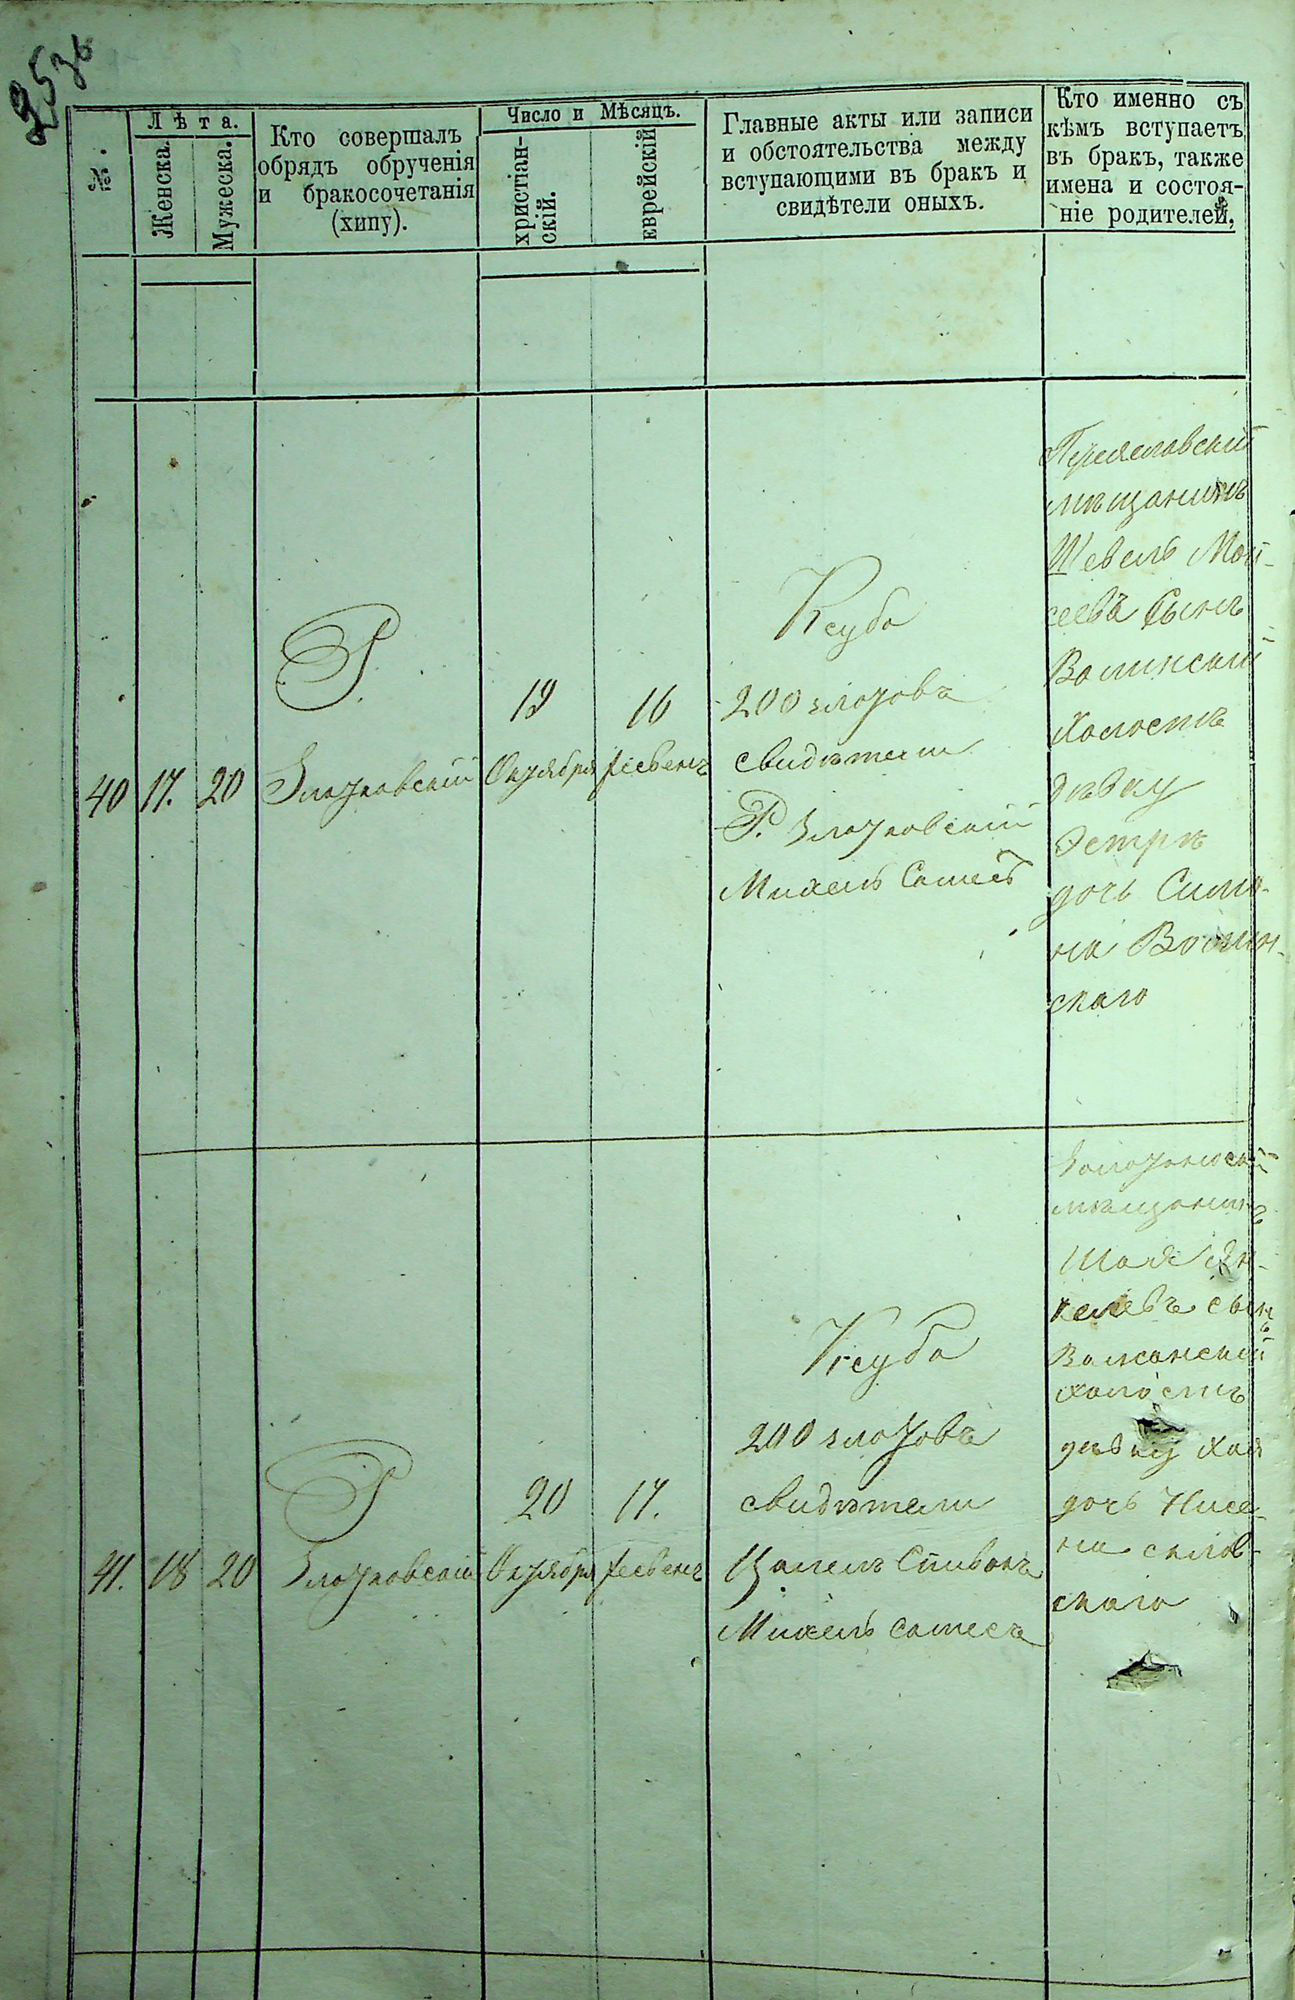 253б
№.
Лѣта.
Женска.
Мужеска.
Кто совершалъ
обрядъ обрученія
и бракосочетанія
(хипу).
Число и Мѣсяцъ.
христіан-
скій.
еврейскій
Главные акты или записи
и обстоятельства между
вступающими въ бракъ и
свидѣтели оныхъ.
Кто именно съ
кѣмъ вступаетъ
въ бракъ, также
имена и состоя-
ніе родителей.
40
17.
20
Р.
Злотковскій
19
Октября
16
Хесвенъ
Ксуба
200 злотовъ
свидѣтели
Р. Злотковскій
Михель
Переяславскій
мѣщанинъ
Шевель Мой-
сеевъ Сынъ
Волинскій
Холостъ
дѣвку
Эстръ
дочь Симо-
на Волин-
скаго
41.
18
20
Р
Злотковскій
20
Октября
17.
Хесвенъ
Ксуба
200 злотовъ
свидѣтели
Спивакъ
Михель
Золотоноскій
мѣщанинъ
Шая Ян-
келевъ сынъ
холостъ
дѣвку Хая
дочь Нисе-
на
скаго